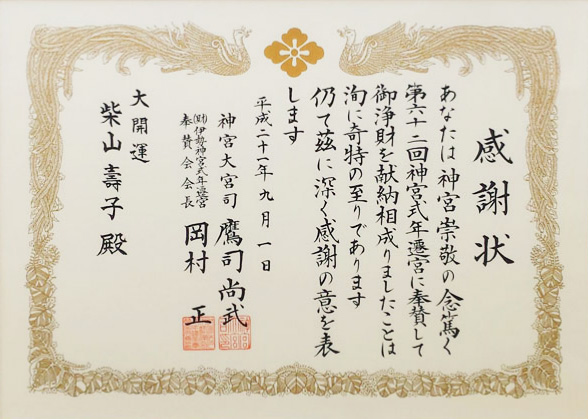 感謝状
あなたは神宮崇敬の念篤く
第六十二回神宮式年遷宮に奉賛して
御浄財を献納相成りましたことは
洵に奇特の至りであります
仍て茲に深く感謝の意を表
します
平成二十一年九月一日
神宮大宮司 鷹司尚武
(財)伊勢神宮式年遷宮
奉賛会会長 岡村正
大開運
柴山壽子殿